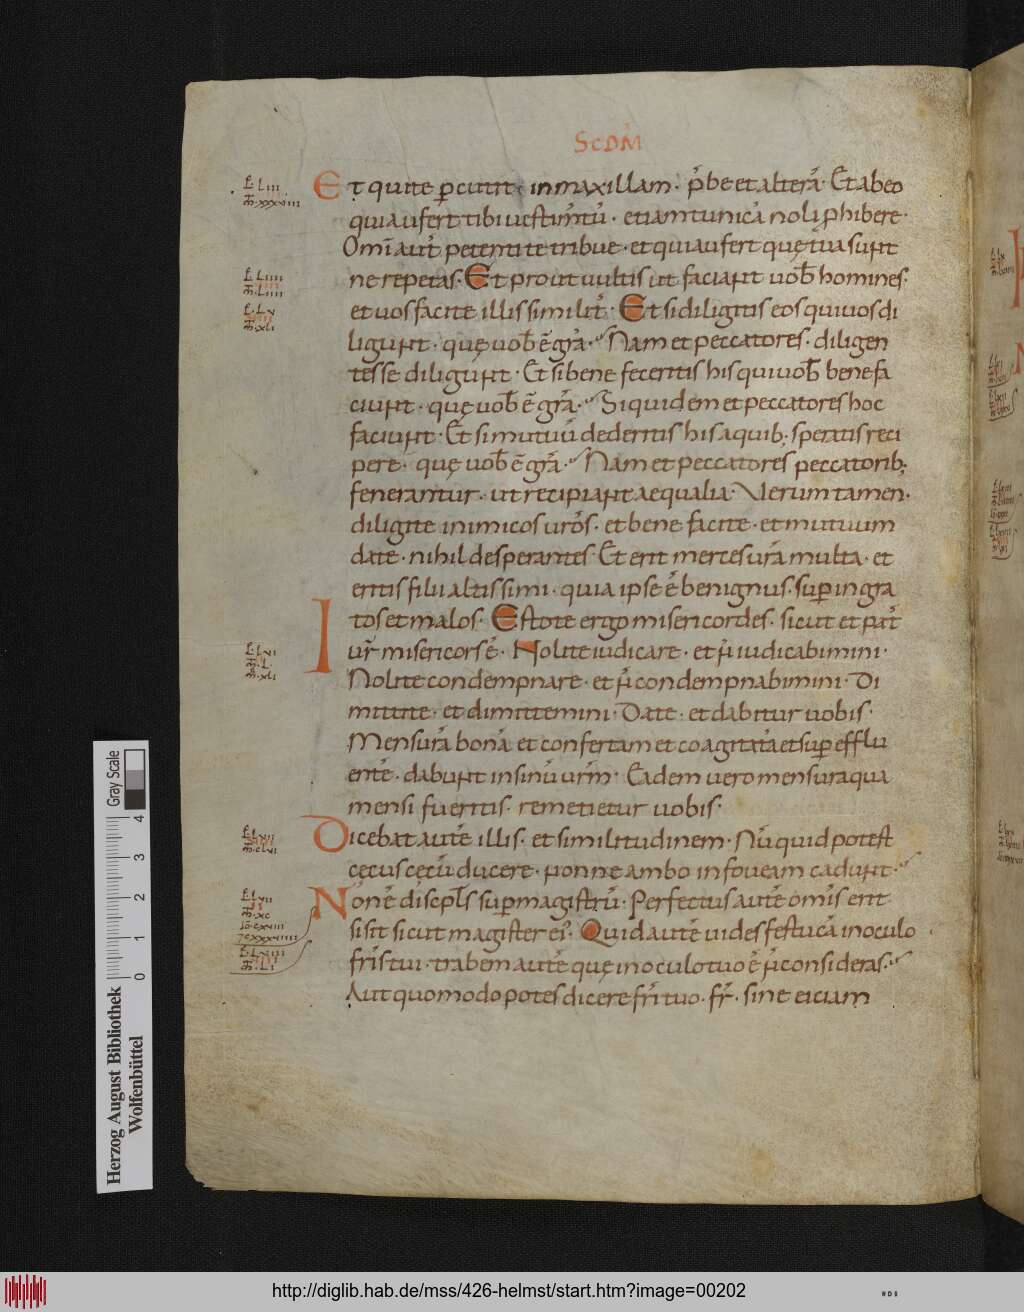 ScDM̄
Et qui te p̄cutit in maxillam · p̄be et alterā· Et ab eo
qui aufert tibi vestim̄tū · etiam tunicā noli ꝓhibere·
Omī aut̄ petenti te tribue · et qui aufert quę tua sunt
ne repetas· Et prout uultis ut faciant uob̄ homines·
et uos facite illis similit̄· Et si diligitis eos qui uos di
ligunt · quę uob̄ ē gr̄a· Nam et peccatores · diligen
tes se diligunt · Et si bene feceritis his qui uob̄ benefa
ciunt · quę uob̄ ē gr̄a· Siquidem et peccatores hoc
faciunt · Et si mutuū dederitis his a quib; speratis reci
pere · quę uob̄ ē gr̄a· Nam et peccatores peccatorib;
fenerantur · ut recipiant aequalia· Verum tamen·
diligite inimicos ur̄os · et bene facite · et mutuum
date · nihil desperantes· Et erit merces ur̄a multa · et
eritis filii altissimi · quia ipse ē benignus · sup̄ ingra
tos et malos· Estote ergo misericordes · sicut et pat̄
ur̄ misericors ē· Nolite iudicare · et n̄ iudicabimini·
Nolite condempnare · et n̄ condempnabimini· Di
mittite · et dimittemini· Date · et dabitur uobis·
Mensurā bonā et confertam et coagitatā et sup̄efflu
entē · dabunt in sinū ur̄m· Eadem uero mensura qua
mensi fueritis · remetietur uobis·
Dicebat autē illis · et similitudinem · Nūquid potest
cęcus cęcū ducere · nonne ambo in foueam cadunt·
Non ē discpl̄s sup̄ magistrū· Perfectus autē om̄is erit
si sit sicut magister ei᾽· Quid autē uides festucā in oculo
fr̄is tui · trabem autē quę in oculo tuo ē n̄ consideras·
Aut quomodo potes dicere fr̄i tuo · fr̄ · sine eiciam
Ł LIII
m̄·xxxviiii
Ł LIIII
m̄·LIIII
Ł·LV
m̄·xLi
Ł LVI
m̄·L
m̄·xLi
Ł LVII
m̄·cLvi
m̄·xc
Iō·cxviiii
Ł·LVIIII
m̄·Li
Gray Scale
0 1 2 3 4
Herzog August Bibliothek
Wolfenbüttel
http://diglib.hab.de/mss/426-helmst/start.htm?image=00202